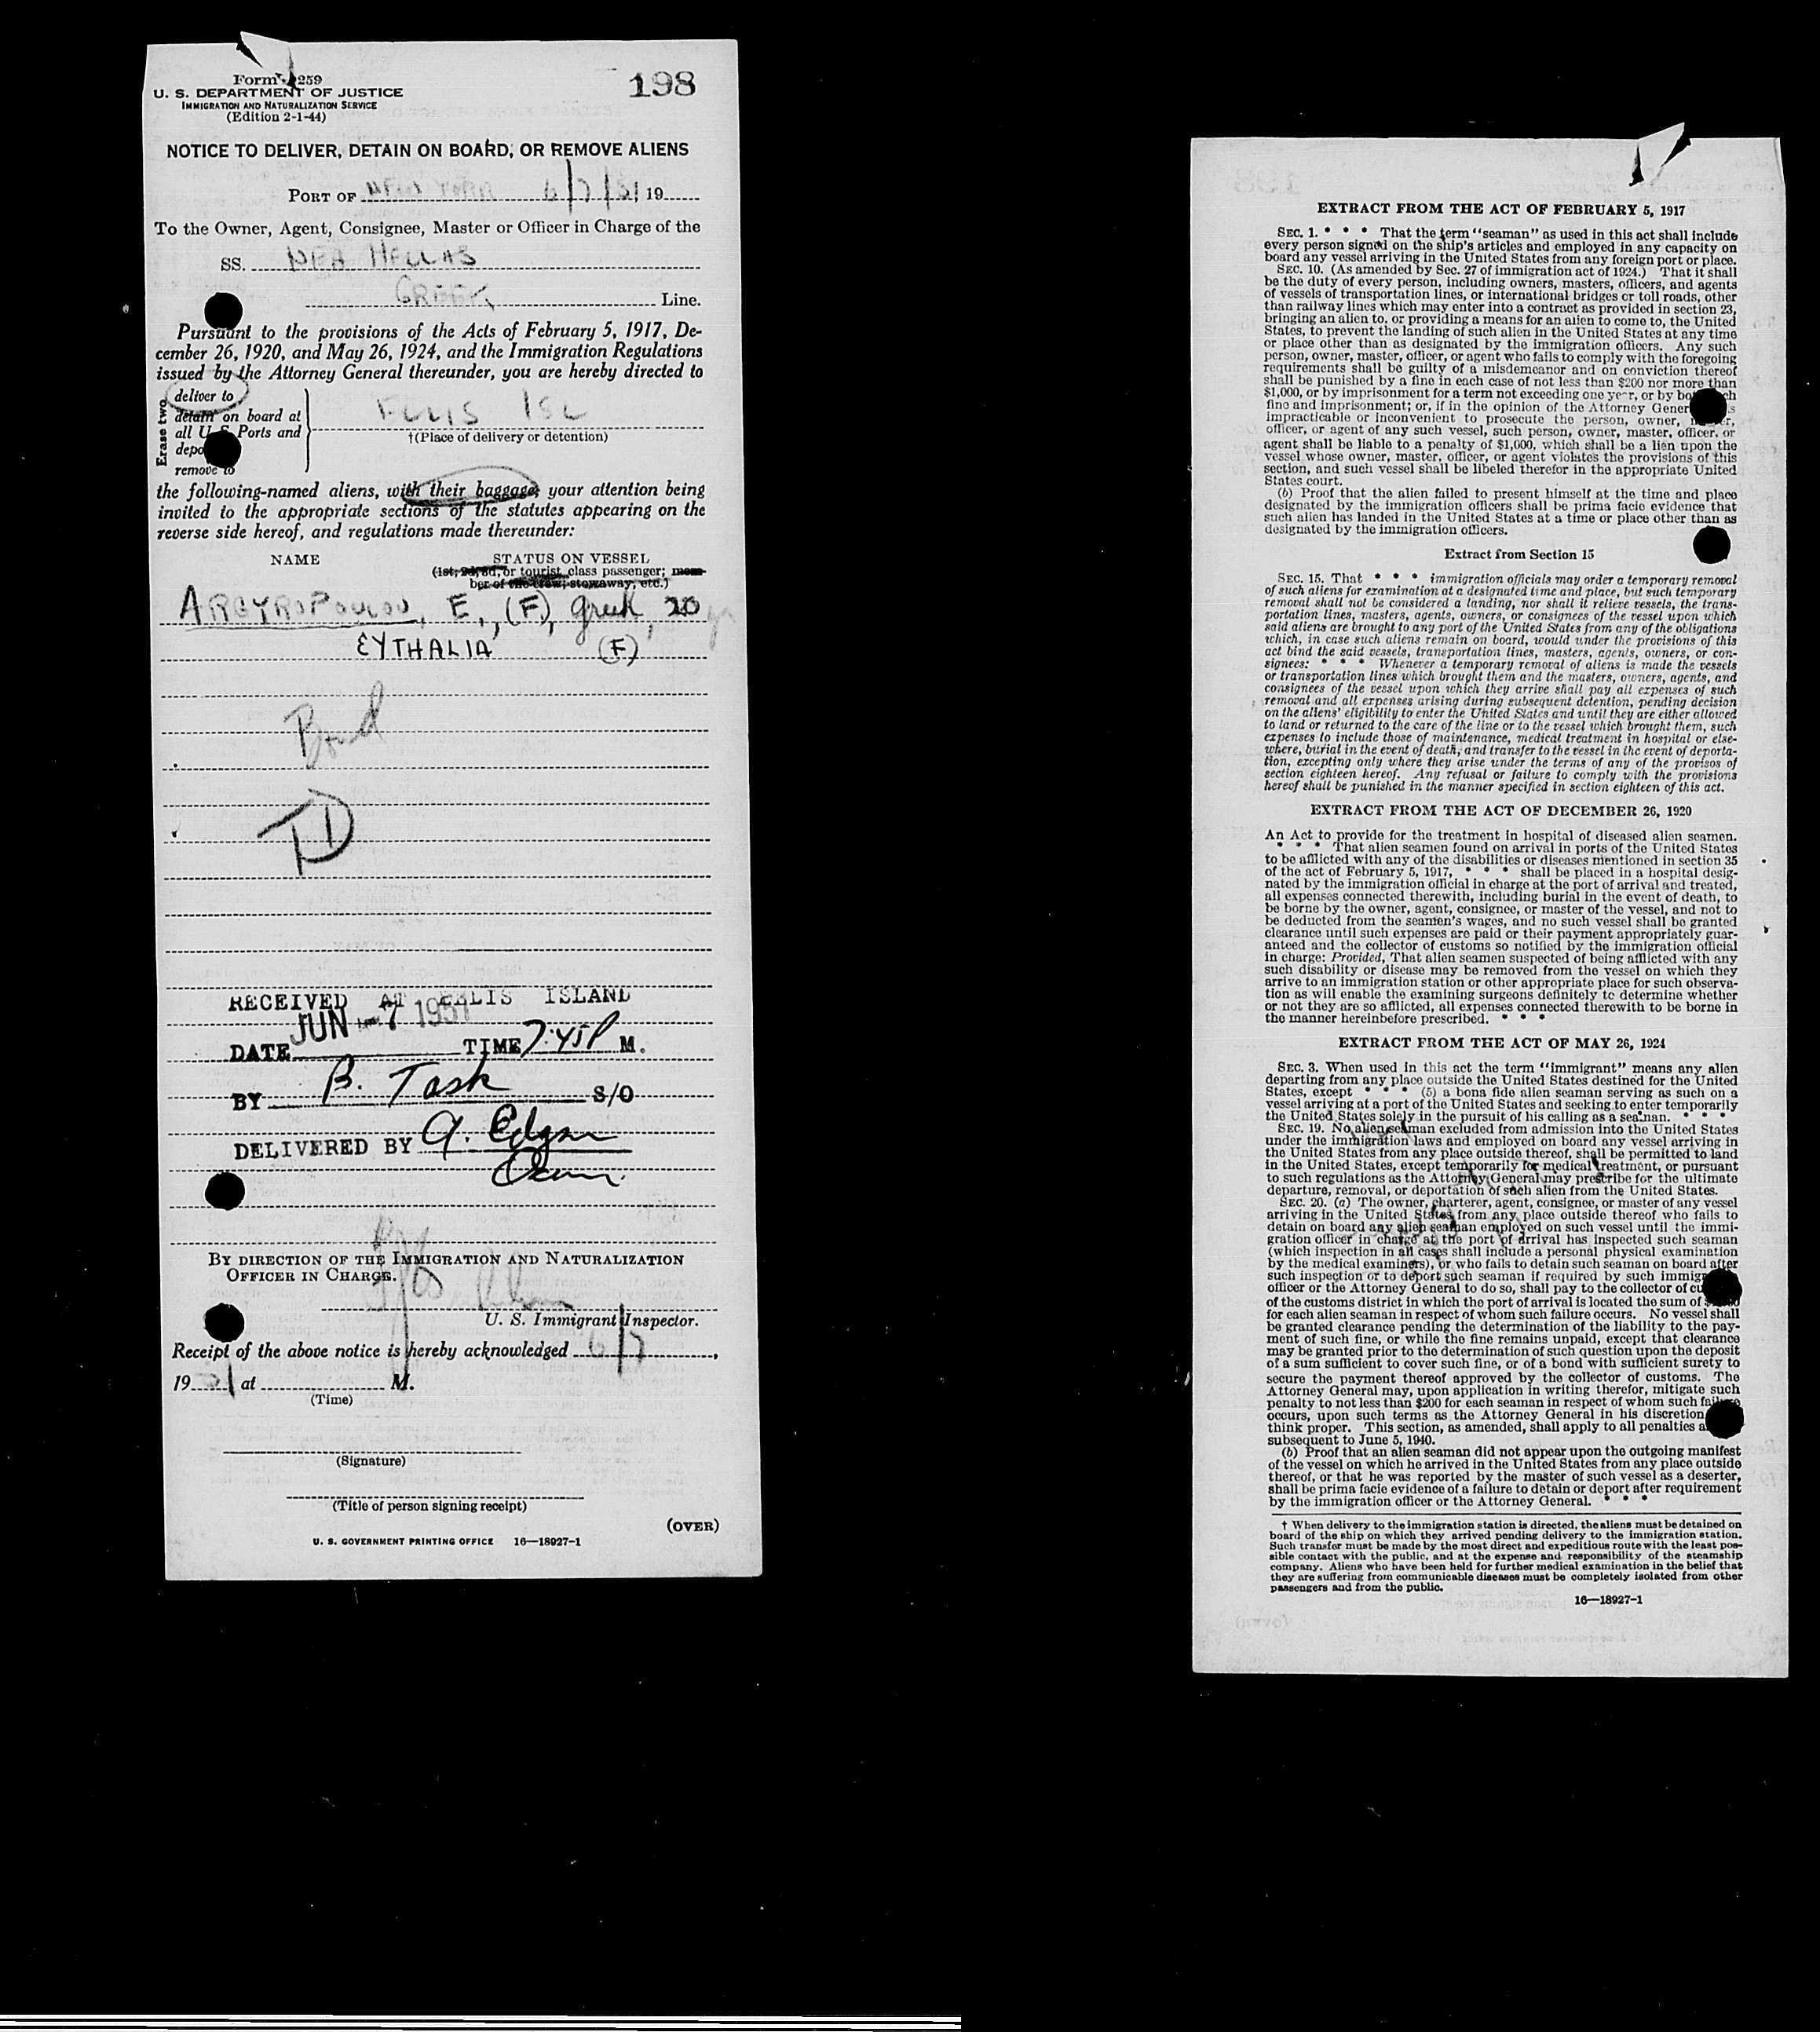 Form 259
198
U. S. DEPARTMENT OF JUSTICE
IMMIGRATION AND NATURALIZATION SERVICE
(Edition 2-1-44)
NOTICE TO DELIVER, DETAIN ON BOARD, OR REMOVE ALIENS
PORT OF NEW YORK 6/7/51 19
To the Owner, Agent, Consignee, Master or Officer in Charge of the
SS. NEA HELLAS
GREEK Line.
Pursuant to the provisions of the Acts of February 5, 1917, De-
cember 26, 1920, and May 26, 1924, and the Immigration Regulations
issued by the Attorney General thereunder, you are hereby directed to
Erase two
deliver to
detain on board at
all U. S. Ports and
depo
remove to
ELLIS ISL
†(Place of delivery or detention)
the following-named aliens, with their baggage, your attention being
invited to the appropriate sections of the statutes appearing on the
reverse side hereof, and regulations made thereunder:
NAME STATUS ON VESSEL
(1st, 2d, 3d, or tourist class passenger; mem-
ber of the crew; stowaway, etc.)
ARGYROPOULOU, E., (F), Greek, 20 yr
EYTHALIA (F)
Bond
TD
RECEIVED AT ELLIS ISLAND
JUN -7 1951
DATE TIME 7:45P M.
BY B. Task S/O
DELIVERED BY A. Edgar
BY DIRECTION OF THE IMMIGRATION AND NATURALIZATION
OFFICER IN CHARGE.
U. S. Immigrant Inspector.
Receipt of the above notice is hereby acknowledged 6/7,
1951 at M.
(Time)
(Signature)
(Title of person signing receipt)
(OVER)
U. S. GOVERNMENT PRINTING OFFICE 16—18927-1
EXTRACT FROM THE ACT OF FEBRUARY 5, 1917
SEC. 1. * * * That the term "seaman" as used in this act shall include
every person signed on the ship's articles and employed in any capacity on
board any vessel arriving in the United States from any foreign port or place.
SEC. 10. (As amended by Sec. 27 of immigration act of 1924.) That it shall
be the duty of every person, including owners, masters, officers, and agents
of vessels of transportation lines, or international bridges or toll roads, other
than railway lines which may enter into a contract as provided in section 23,
bringing an alien to, or providing a means for an alien to come to, the United
States, to prevent the landing of such alien in the United States at any time
or place other than as designated by the immigration officers. Any such
person, owner, master, officer, or agent who fails to comply with the foregoing
requirements shall be guilty of a misdemeanor and on conviction thereof
shall be punished by a fine in each case of not less than $200 nor more than
$1,000, or by imprisonment for a term not exceeding one year, or by both such
fine and imprisonment; or, if in the opinion of the Attorney General it is
impracticable or inconvenient to prosecute the person, owner, master,
officer, or agent of any such vessel, such person, owner, master, officer, or
agent shall be liable to a penalty of $1,000, which shall be a lien upon the
vessel whose owner, master, officer, or agent violates the provisions of this
section, and such vessel shall be libeled therefor in the appropriate United
States court.
(b) Proof that the alien failed to present himself at the time and place
designated by the immigration officers shall be prima facie evidence that
such alien has landed in the United States at a time or place other than as
designated by the immigration officers.
Extract from Section 15
SEC. 15. That * * * immigration officials may order a temporary removal
of such aliens for examination at a designated time and place, but such temporary
removal shall not be considered a landing, nor shall it relieve vessels, the trans-
portation lines, masters, agents, owners, or consignees of the vessel upon which
said aliens are brought to any port of the United States from any of the obligations
which, in case such aliens remain on board, would under the provisions of this
act bind the said vessels, transportation lines, masters, agents, owners, or con-
signees: * * * Whenever a temporary removal of aliens is made the vessels
or transportation lines which brought them and the masters, owners, agents, and
consignees of the vessel upon which they arrive shall pay all expenses of such
removal and all expenses arising during subsequent detention, pending decision
on the aliens' eligibility to enter the United States and until they are either allowed
to land or returned to the care of the line or to the vessel which brought them, such
expenses to include those of maintenance, medical treatment in hospital or else-
where, burial in the event of death, and transfer to the vessel in the event of deporta-
tion, excepting only where they arise under the terms of any of the provisos of
section eighteen hereof. Any refusal or failure to comply with the provisions
hereof shall be punished in the manner specified in section eighteen of this act.
EXTRACT FROM THE ACT OF DECEMBER 26, 1920
An Act to provide for the treatment in hospital of diseased alien seamen.
* * * That alien seamen found on arrival in ports of the United States
to be afflicted with any of the disabilities or diseases mentioned in section 35
of the act of February 5, 1917, * * * shall be placed in a hospital desig-
nated by the immigration official in charge at the port of arrival and treated,
all expenses connected therewith, including burial in the event of death, to
be borne by the owner, agent, consignee, or master of the vessel, and not to
be deducted from the seamen's wages, and no such vessel shall be granted
clearance until such expenses are paid or their payment appropriately guar-
anteed and the collector of customs so notified by the immigration official
in charge: Provided, That alien seamen suspected of being afflicted with any
such disability or disease may be removed from the vessel on which they
arrive to an immigration station or other appropriate place for such observa-
tion as will enable the examining surgeons definitely to determine whether
or not they are so afflicted, all expenses connected therewith to be borne in
the manner hereinbefore prescribed. * * *
EXTRACT FROM THE ACT OF MAY 26, 1924
SEC. 3. When used in this act the term "immigrant" means any alien
departing from any place outside the United States destined for the United
States, except * * * (5) a bona fide alien seaman serving as such on a
vessel arriving at a port of the United States and seeking to enter temporarily
the United States solely in the pursuit of his calling as a seaman. * * *
SEC. 19. No alien seaman excluded from admission into the United States
under the immigration laws and employed on board any vessel arriving in
the United States from any place outside thereof, shall be permitted to land
in the United States, except temporarily for medical treatment, or pursuant
to such regulations as the Attorney General may prescribe for the ultimate
departure, removal, or deportation of such alien from the United States.
SEC. 20. (a) The owner, charterer, agent, consignee, or master of any vessel
arriving in the United States from any place outside thereof who fails to
detain on board any alien seaman employed on such vessel until the immi-
gration officer in charge at the port of arrival has inspected such seaman
(which inspection in all cases shall include a personal physical examination
by the medical examiners), or who fails to detain such seaman on board after
such inspection or to deport such seaman if required by such immig
officer or the Attorney General to do so, shall pay to the collector of cu
of the customs district in which the port of arrival is located the sum of
for each alien seaman in respect of whom such failure occurs. No vessel shall
be granted clearance pending the determination of the liability to the pay-
ment of such fine, or while the fine remains unpaid, except that clearance
may be granted prior to the determination of such question upon the deposit
of a sum sufficient to cover such fine, or of a bond with sufficient surety to
secure the payment thereof approved by the collector of customs. The
Attorney General may, upon application in writing therefor, mitigate such
penalty to not less than $200 for each seaman in respect of whom such failure
occurs, upon such terms as the Attorney General in his discretion
think proper. This section, as amended, shall apply to all penalties a
subsequent to June 5, 1940.
(b) Proof that an alien seaman did not appear upon the outgoing manifest
of the vessel on which he arrived in the United States from any place outside
thereof, or that he was reported by the master of such vessel as a deserter,
shall be prima facie evidence of a failure to detain or deport after requirement
by the immigration officer or the Attorney General. * * *
† When delivery to the immigration station is directed, the aliens must be detained on
board of the ship on which they arrived pending delivery to the immigration station.
Such transfer must be made by the most direct and expeditious route with the least pos-
sible contact with the public, and at the expense and responsibility of the steamship
company. Aliens who have been held for further medical examination in the belief that
they are suffering from communicable diseases must be completely isolated from other
passengers and from the public.
16—18927-1